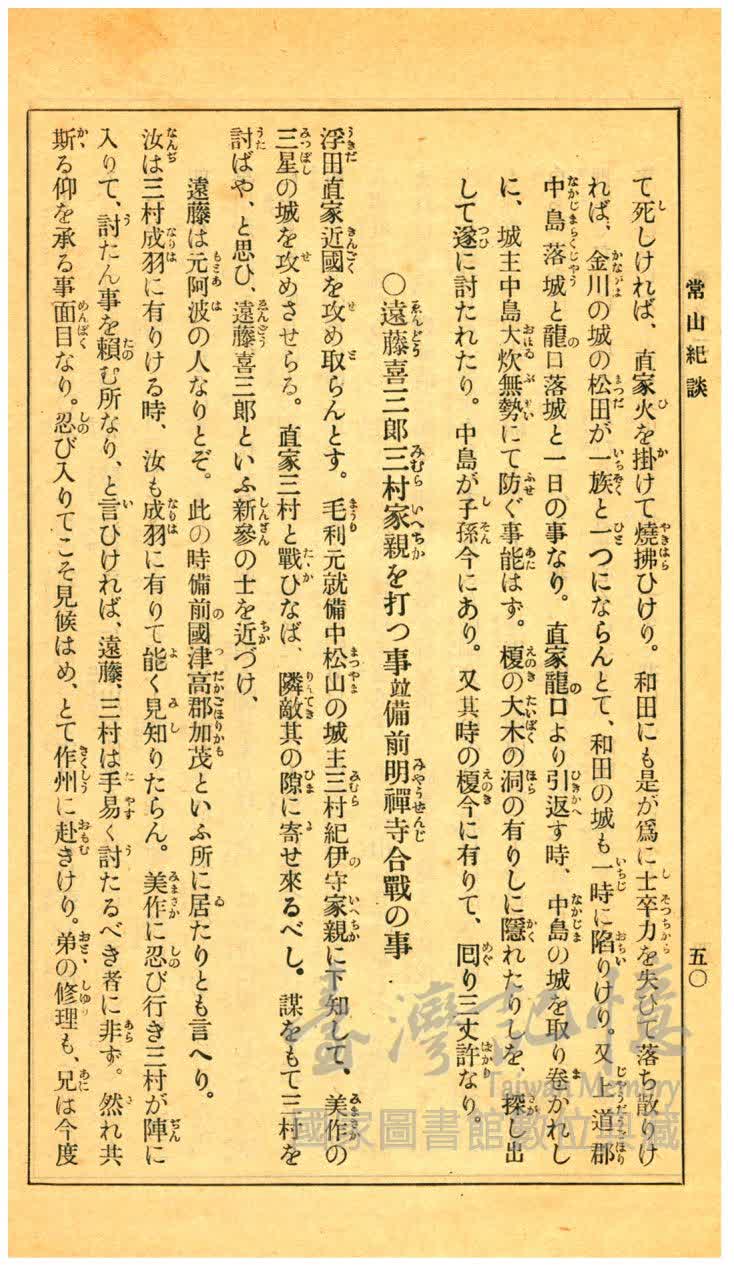 常山紀談
五〇
て死しければ、直家火を掛けて燒拂ひけり。和田にも是が爲に士卒力を失ひて落ち散りけ
れば、金川の城の松田が一族と一つにならんとて、和田の城も一時に陷りけり。又上道郡
中島落城と龍口落城と一日の事なり。直家龍口より引返す時、中島の城を取り卷かれし
に、城主中島大炊無勢にて防ぐ事能はず。榎の大木の洞の有りしに隱れたりしを、探し出
して遂に討たれたり。中島が子孫今にあり。又其時の榎今に有りて、囘り三丈許なり。
〇遠藤喜三郎三村家親を打つ事竝備前明禪寺合戰の事
浮田直家近國を攻め取らんとす。毛利元就備中松山の城主三村紀伊守家親に下知して、美作の
三星の城を攻めさせらる。直家三村と戰ひなば、隣敵其の隙に寄せ來るべし。謀をもて三村を
討ばや、と思ひ、遠藤喜三郎といふ新參の士を近づけ、
遠藤は元阿波の人なりとぞ。此の時備前國津高郡加茂といふ所に居たりとも言へり。
汝は三村成羽に有りける時、汝も成羽に有りて能く見知りたらん。美作に忍び行き三村が陣に
入りて、討たん事を賴む所なり、と言ひければ、遠藤、三村は手易く討たるべき者に非ず。然れ共
斯る仰を承る事面目なり。忍び入りてこそ見候はめ、とて作州に赴きけり。弟の修理も、兄は今度
臺灣記憶
Taiwan Memory
國家圖書館數位典藏